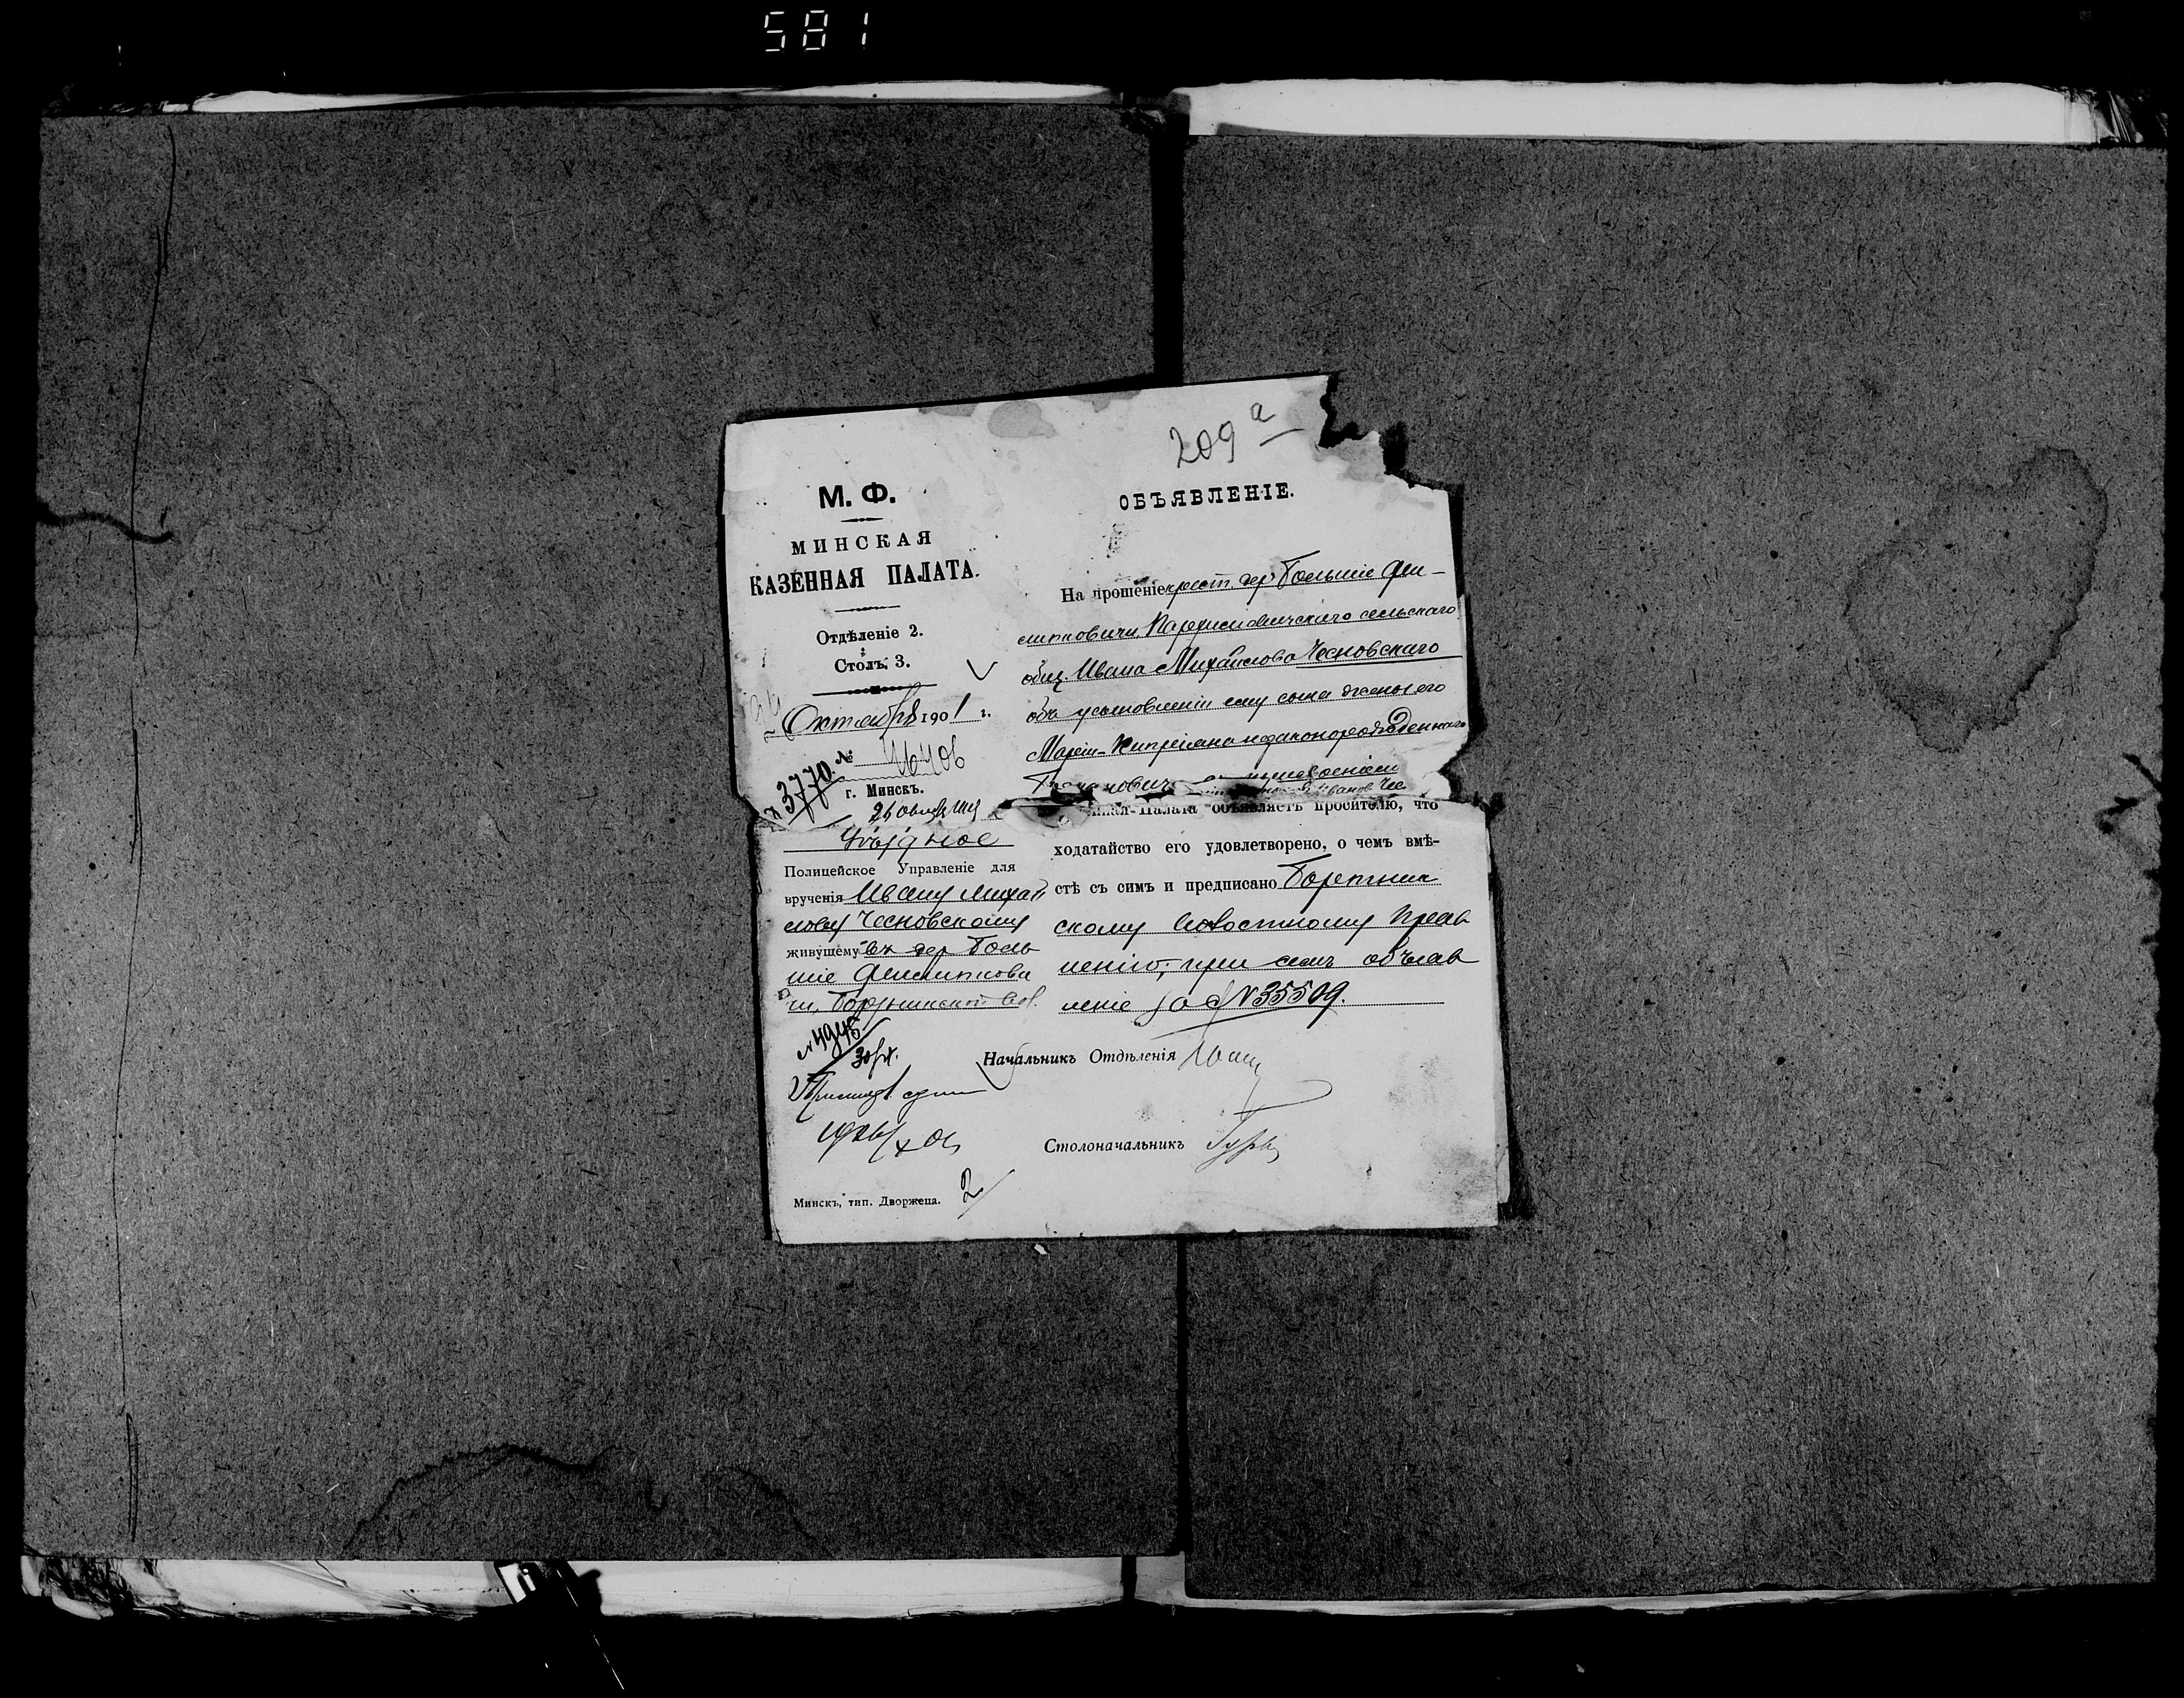 581
209 а
М. Ф.
МИНСКАЯ
КАЗЕННАЯ ПАЛАТА.
Отдѣленіе 2.
Столъ 3.
Октября 1901 г.
№ 46406
№ 3770
г. Минскъ.
Уѣздное
Полицейское Управленіе для
врученія Ивану Михай
лову Чесновскому
живущему въ дер Боль
шіе Филипкови
чи,
30/X.
Минскъ, тип. Дворжеца. 2
ОБЪЯВЛЕНІЕ.
На прошеніе крест. дер. Большіе Фи-
липковичи сельскаго
общ. Ивана Михайлова Чесновскаго
объ усыновленіи ему сына жены его
Маріи - Кипріана незаконорожденнаго
Палата объявляетъ просителю, что
ходатайство его удовлетворено, о чемъ вмѣ-
стѣ съ симъ и предписано
скому Волостному Прав
ленію, при семъ объяв
леніе за № 35509.
Начальникъ Отдѣленія
Столоначальникъ